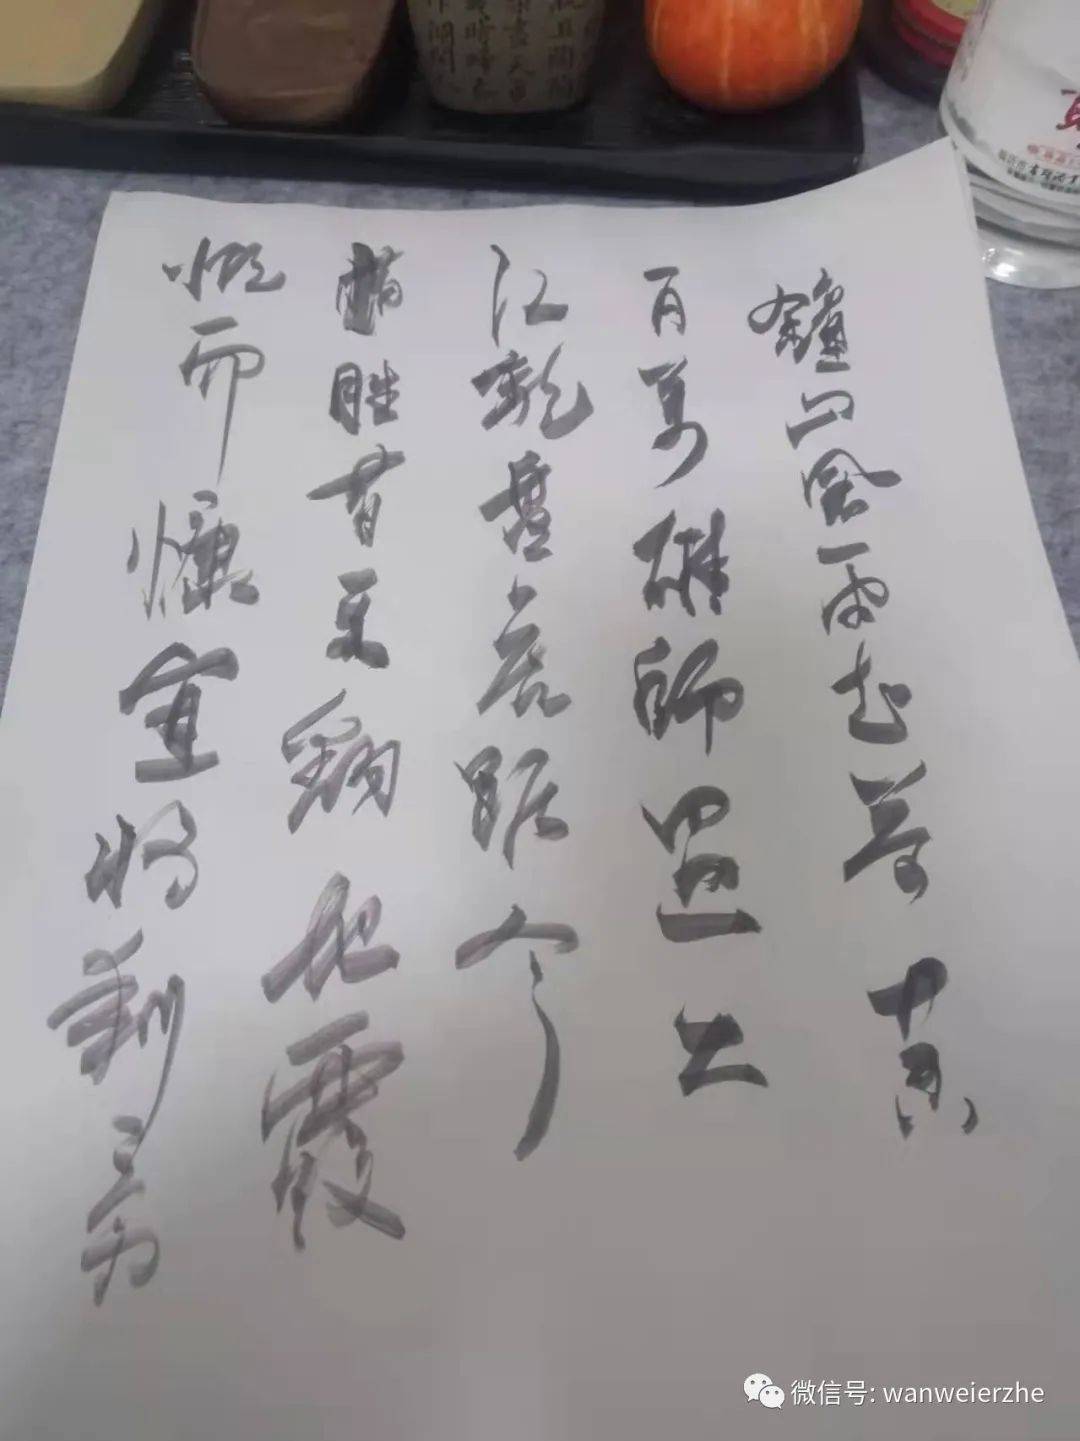 鐘山風雨起蒼黄
百萬雄師過大
江龍盤虎踞今
勝昔天翻地覆
慨而慷宜將剩勇
微信号: wanweierzhe